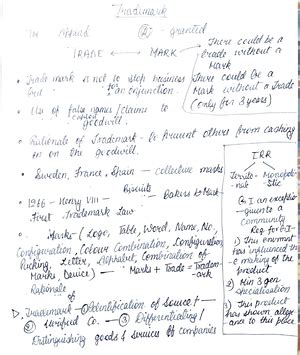 Trademark
(2) - granted
TRADE ← → MARK
There could be a
trade without a
Mark
There could be a
Mark without a Trade
(only for 3 years)
• Trade mark is not to stop business
but an injunction.
• Use of false names / claims to
goodwill.
• Rationale of Trademark - to Prevent others from cashing
in on the goodwill.
• Sweden, France, Spain - collective marks
Biscuits
• 1266 - Henry VIII - Bakers to Mark
First Trademark Law
• Marks - (Logo, Table, Word, Name, No,
Configuration, Colour Combination, Configuration,
Packing, Letter, Alphabet, Combination of
Marks, Device) - Marks + Trade = Trademark
Rationale of
Trademark - ① Identification of Source +
② Co. - ③ Differentiating /
Distinguishing goods & services of companies
IRR
Monopolistic
G.I an
a community
Req for G.I -
1) This has influenced the
making of the
product
2) Min 3 gen
specialisation
3) This product
has shown
to this place